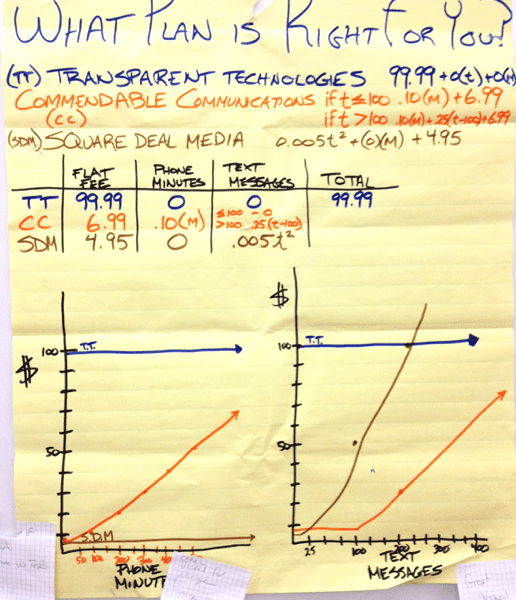 WHAT PLAN IS RIGHT FOR YOU?
(TT) TRANSPARENT TECHNOLOGIES 99.99 + 0(t) + 0(M)
COMMENDABLE COMMUNICATIONS if t ≤ 100 .10(M) + 6.99
(CC) if t > 100 .10(M) + .25(t-100) + 6.99
(SDM) SQUARE DEAL MEDIA 0.005t² + (0)(M) + 4.95
FLAT FEE PHONE MINUTES TEXT MESSAGES TOTAL
TT 99.99 0 0 99.99
CC 6.99 .10(M) ≤100 - 0
>100 .25(t-100)
SDM 4.95 0 .005t²
$
100
T.T.
50
S.D.M
50 100 200 300 400
PHONE
MINUTE
$
100
T.T.
50
25 100 200 300 400
TEXT
MESSAGES